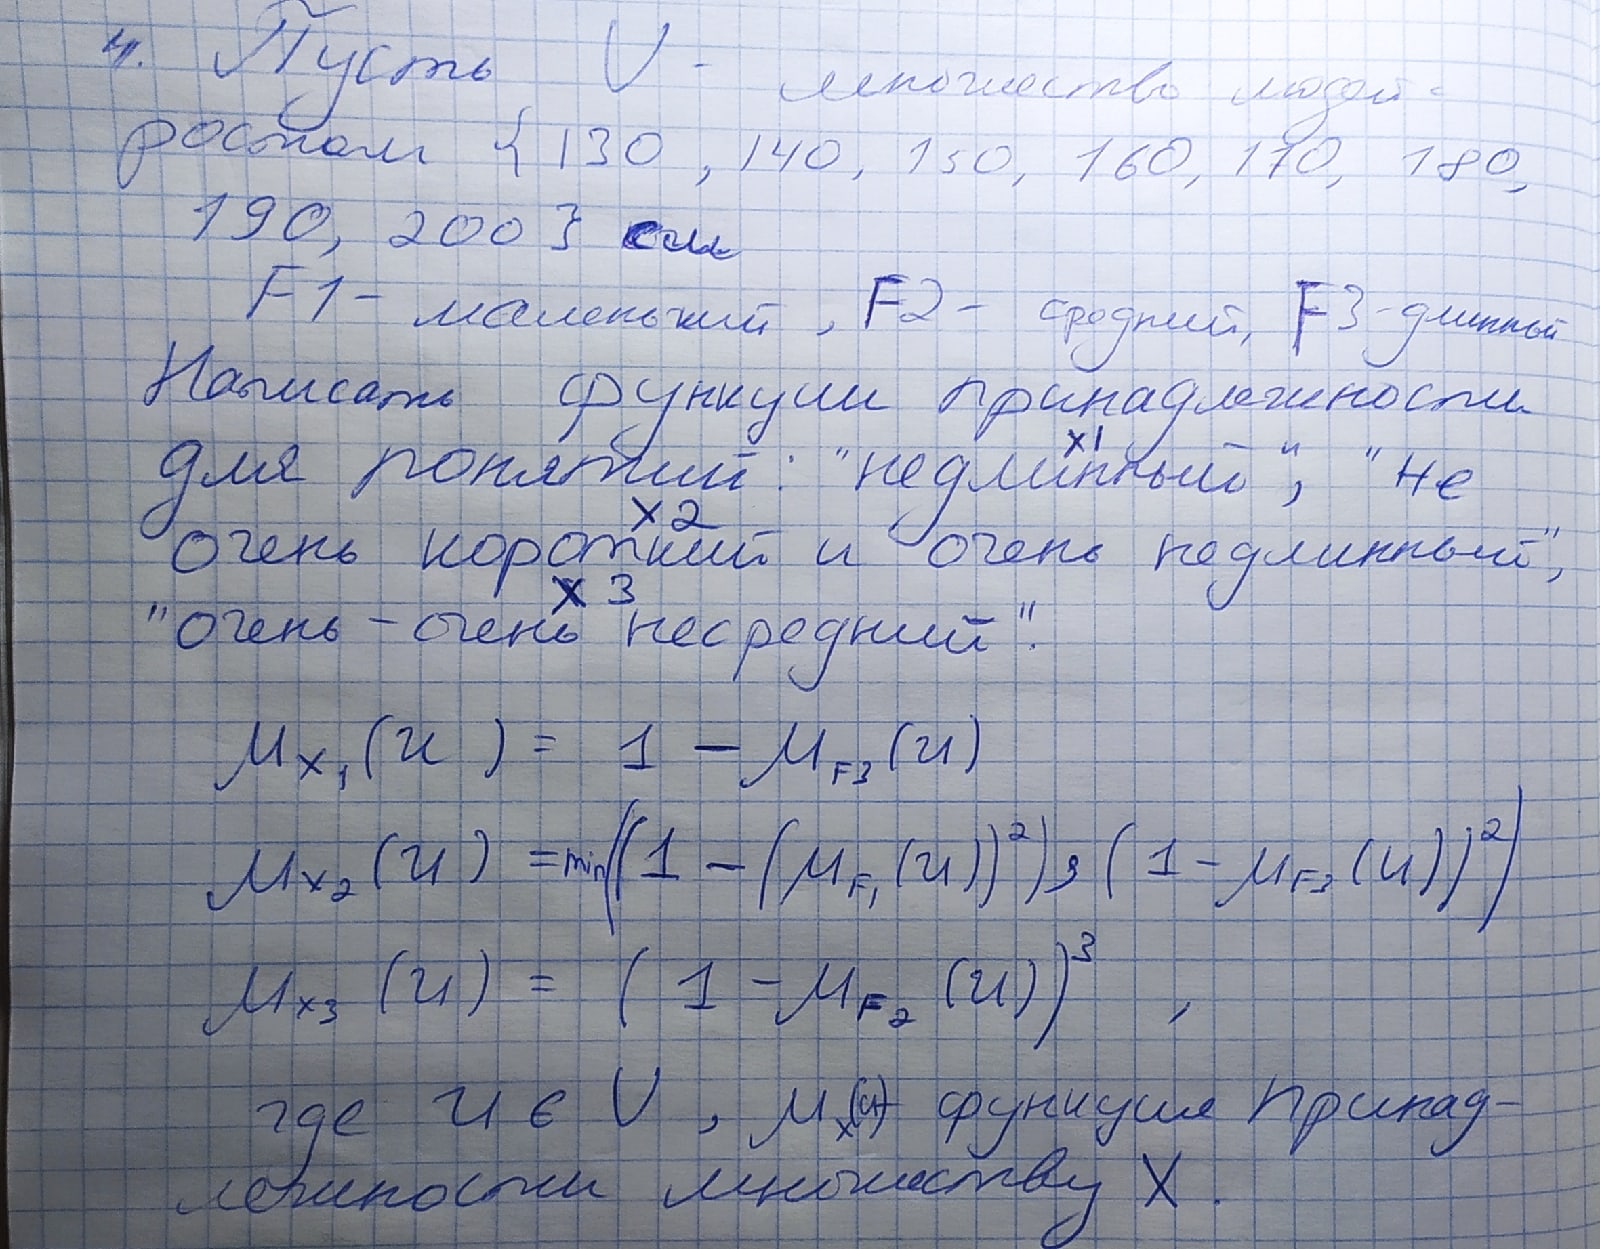 4. Пусть U - множество людей
ростом {130, 140, 150, 160, 170, 180,
190, 200} см
F1 - маленький, F2 - средний, F3 - длинный
Написать функции принадлежности
для понятий: "недлинный", "не
очень короткий и очень недлинный",
"очень - очень несредний".
X1
X2
X3
μ_{X_1}(u) = 1 - μ_{F3}(u)
μ_{X_2}(u) = min((1 - (μ_{F_1}(u))^2), (1 - μ_{F3}(u))^2)
μ_{X3}(u) = (1 - μ_{F_2}(u))^3,
где u ∈ U, μ_x(u) функция принад-
лежности множеству X.